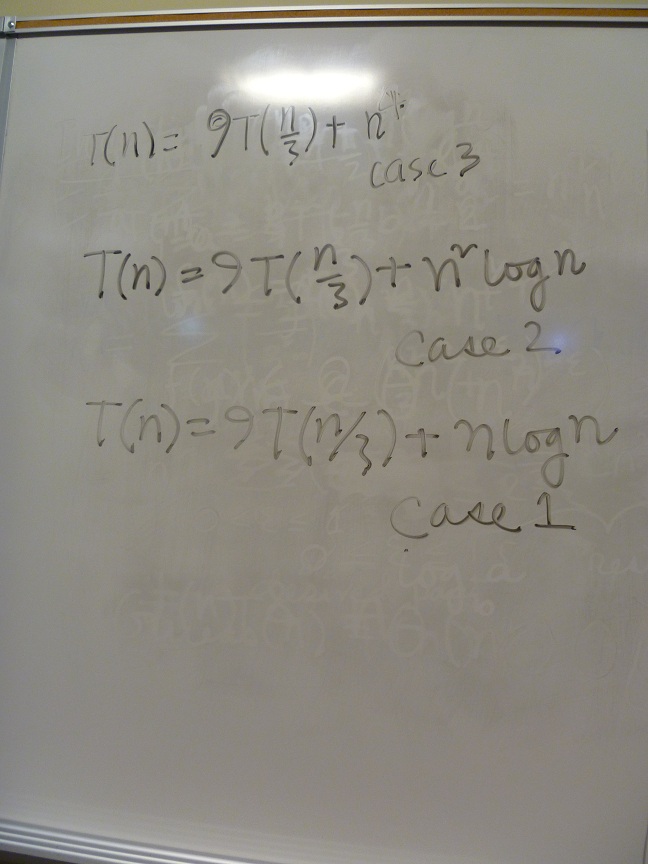 T(n) = 9T(n/3) + n⁴
case 3
T(n) = 9T(n/3) + n² log n
Case 2
T(n) = 9T(n/3) + n log n
Case 1